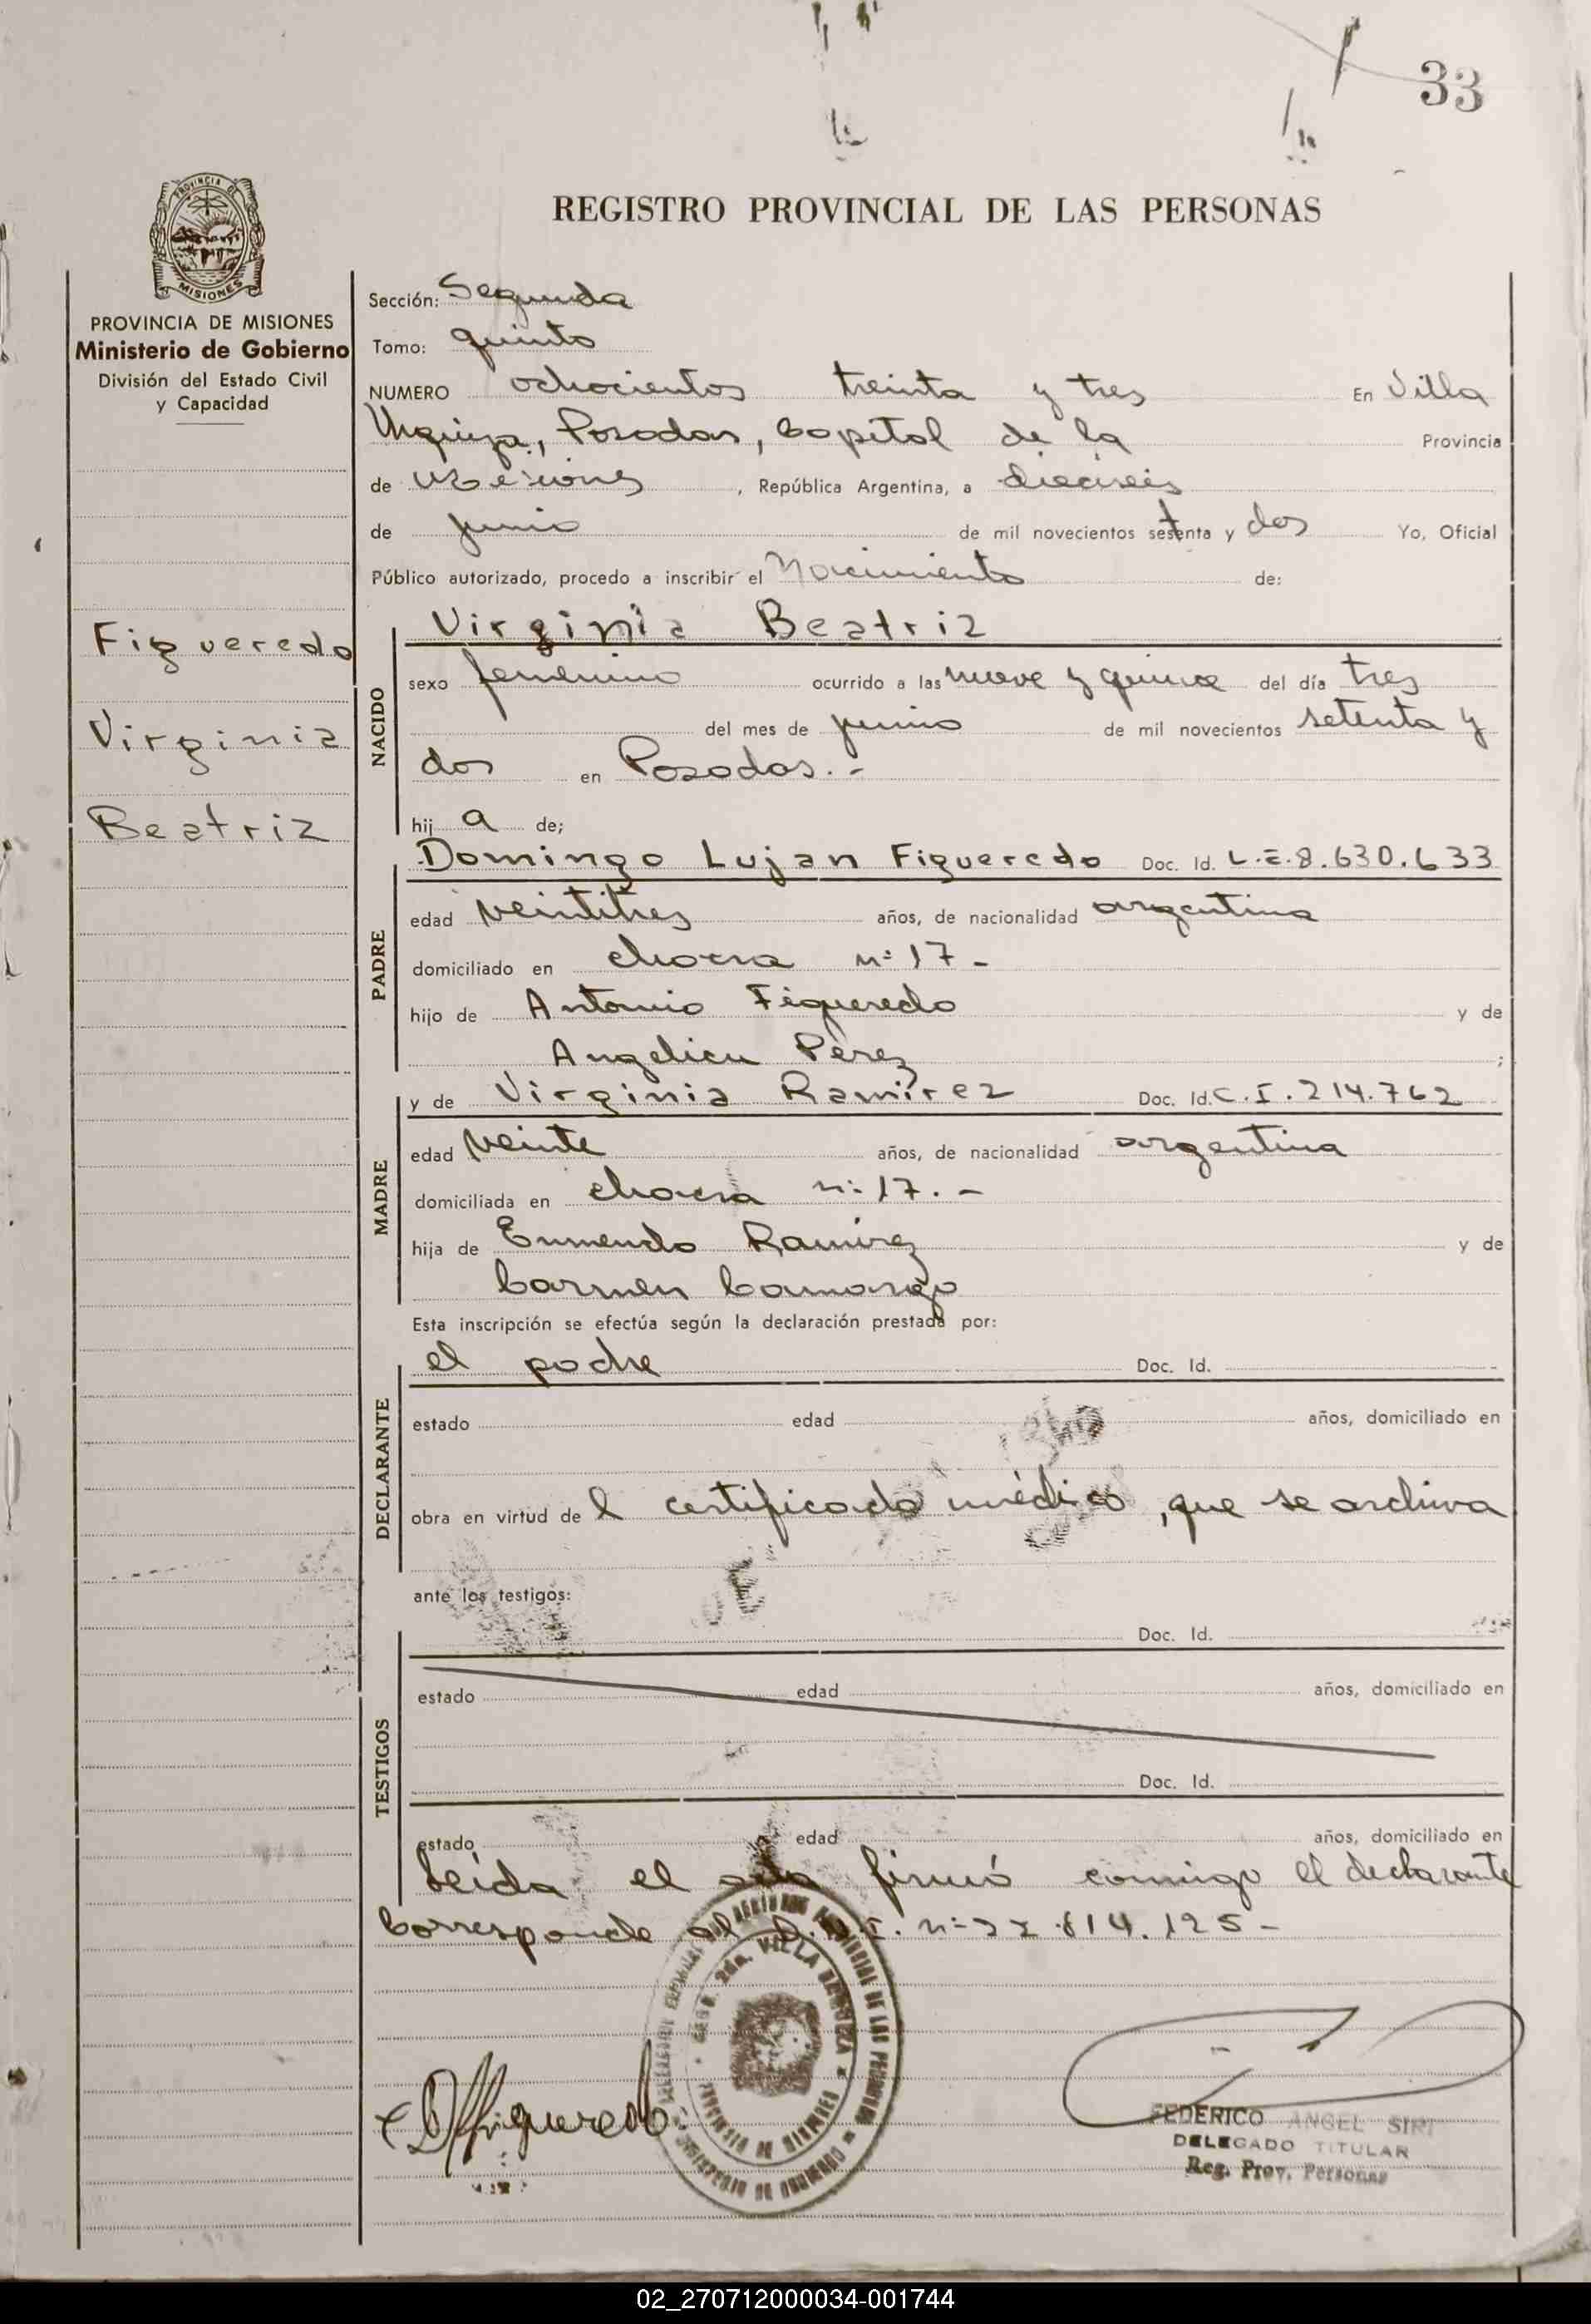 33
REGISTRO PROVINCIAL DE LAS PERSONAS
PROVINCIA DE MISIONES
Ministerio de Gobierno
División del Estado Civil
y Capacidad
Figueredo
Virginia
Beatriz
Sección: Segunda
Tomo: quinto
NUMERO ochocientos treinta y tres En Villa
Urquiza, Posadas, Capital de la Provincia
de Misiones, República Argentina, a dieciseis
de junio de mil novecientos setenta y dos Yo, Oficial
Público autorizado, procedo a inscribir el Nacimiento de:
NACIDO
Virginia Beatriz
sexo femenino ocurrido a las nueve y quince del día tres
del mes de junio de mil novecientos setenta y
dos en Posadas.-
hij a de;
PADRE
Domingo Lujan Figueredo Doc. Id. L.E.8.630.633
edad veintitres años, de nacionalidad argentina
domiciliado en chacra nº 17-
hijo de Antonio Figueredo y de
Angelica Perez;
MADRE
y de Virginia Ramirez Doc. Id. C.I.214.762
edad veinte años, de nacionalidad argentina
domiciliada en chacra nº 17.-
hija de Ramirez y de
Carmen Camargo
Esta inscripción se efectúa según la declaración prestada por:
DECLARANTE
el padre Doc. Id.
estado edad años, domiciliado en
obra en virtud de l certificado médico, que se archiva
ante los testigos:
TESTIGOS
Doc. Id.
estado edad años, domiciliado en
Doc. Id.
estado edad años, domiciliado en
Leída el acta firmó conmigo el declarante
Corresponde al D.N.I. nº 22.814.125-
Figueredo
FEDERICO ANGEL SIRI
DELEGADO TITULAR
Reg. Prov. Personas
02_270712000034-001744